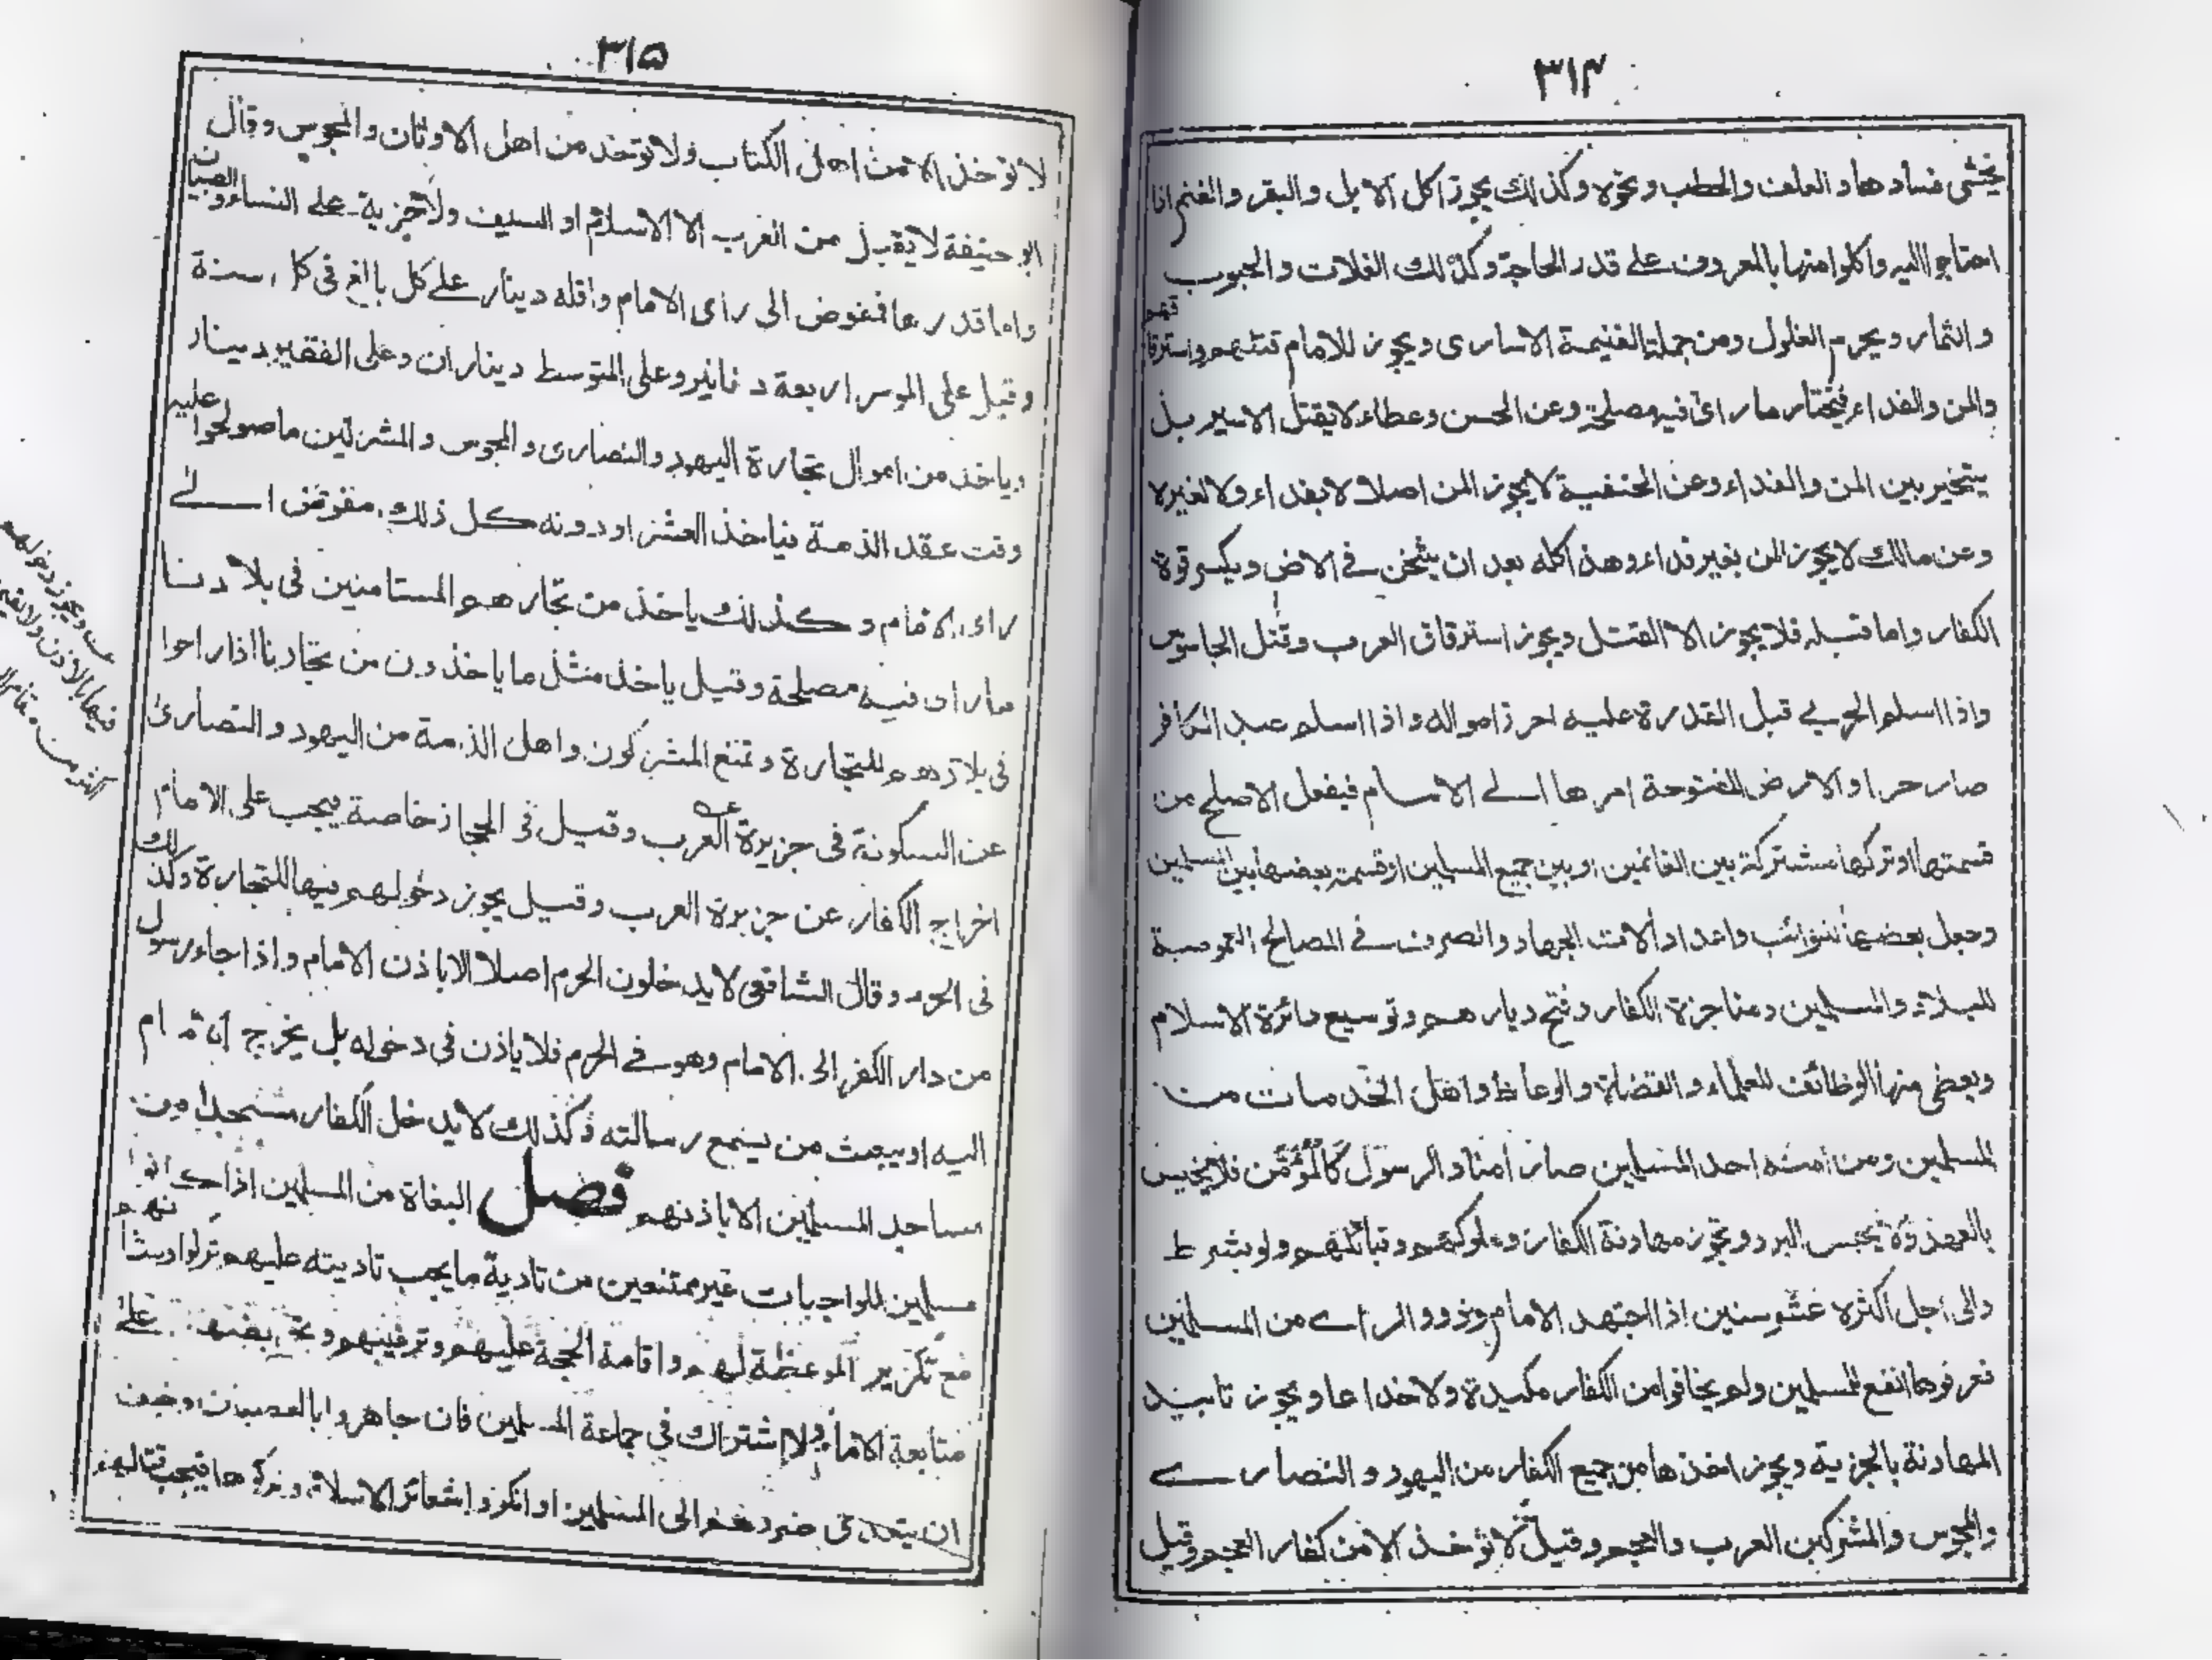 ٣١٤
يخشى فسادها و العلف والحطب ونحوه وكذلك يجوز اكل الابل والبقر والغنم اذا
احتاجوا اليه واكلوا منها بالمعروف على قدر الحاجة وكذلك الغلات والحبوب
والثمار ويحرم الغلول ومن جملة الغنيمة الاسارى ويجوز للامام قتلهم واسترقاقهم
والمن والفداء فيختار ما راى فيه مصلحة وعن الحسن وعطاء لايقتل الاسير بل
يتخير بين المن والفداء وعن الحنفية لايجوز المن اصلا لا بفداء ولا لغيره
وعن مالك لايجوز المن بغير فداء وهذا كله بعد ان يثخن في الارض ويكسر قوة
الكفار واما قبله فلا يجوز الا القتل ويجوز استرقاق العرب وقتل الجاسوس
واذا اسلم الحربي قبل القدرة عليه احرز امواله واذا اسلم عبد الكافر
صار حرا والارض المفتوحة امرها الى الامام فيفعل الاصلح من
قسمتها اوتركها مشتركة بين الغانمين اوبين جميع المسلمين اوقسمة بعضها بين المسلمين
وجعل بعضها لنوائب واعداد آلات الجهاد والصرف في المصالح العمومية
للبلاد والمسلمين ومناجزة الكفار وفتح ديارهم وتوسيع دائرة الاسلام
وبعضى منها الوظائف للعلماء والقضاة والوعاظ واهل الخدمات من
المسلمين ومن امنه احد المسلمين صار امنا و الرسول كالمؤتمن فلا يخيس
بالعهد ولا يحبس البرد وتجوز مهادنة الكفار وملوكهم وقبائلهم ولو بشرط
والى اجل اكثره عشر سنين اذا اجتهد الامام وذوو الراى من المسلمين
فعرفوها انفع للمسلمين ولم يخافوا من الكفار مكيدة ولاخداعا ويجوز تابيد
المهادنة بالجزية ويجوز اخذها من جميع الكفار من اليهود والنصارى
والمجوس والمشركين العرب والعجم وقيل لاتؤخذ الامن كفار العجم وقيل
٣١٥
لا توخذ الا من اهل الكتاب ولا توخذ من اهل الاوثان والمجوس وقال
ابو حنيفة لايقبل من العرب الا الاسلام او السيف ولاجزية على النساء والصبيان
واما قدرها فمفوض الى راى الامام واقله دينار على كل بالغ في كل سنة
وقيل على الموسر اربعة دنانير وعلى المتوسط ديناران وعلى الفقير دينار
وياخذ من اموال تجارة اليهود والنصارى والمجوس والمشركين ما صولحوا عليه
وقت عقد الذمة فياخذ العشر او دونه كل ذلك مفوض الى
راى الامام وكذلك ياخذ من تجارهم المستامنين في بلادنا
ما راى فيه مصلحة وقيل ياخذ مثل ما ياخذون من تجارنا اذا راحوا
في بلادهم للتجارة وتمنع المشركون واهل الذمة من اليهود والنصارى
عن السكونة في جزيرة العرب وقيل في الحجاز خاصة يجب على الامام
اخراج الكفار عن جزيرة العرب وقيل يجوز دخولهم فيها للتجارة وكذلك
في الحرم وقال الشافعى لايدخلون الحرم اصلا الا باذن الامام واذا جاء رسول
من دار الكفر الى الامام وهو في الحرم فلا ياذن في دخوله بل يخرج الامام
اليه او يبعث من يسمع رسالته وكذلك لايدخل الكفار مسجدا من
مساجد المسلمين الا باذنهم فصل البغاة من المسلمين اذا كانوا
مسلمين للواجبات غير ممتنعين من تادية ما يجب تاديته عليهم تركوا وشانهم
مع تكرير الموعظة لهم واقامة الحجة عليهم وترغيبهم وتحريضهم على
متابعة الامام والاشتراك في جماعة المسلمين فان جاهروا بالعصيان وخيف
ان يتعدى ضررهم الى المسلمين او انكروا شعائر الاسلام وتركوها فيجب قتالهم
ويجوز دخولهم
فيها بالاذن ولا